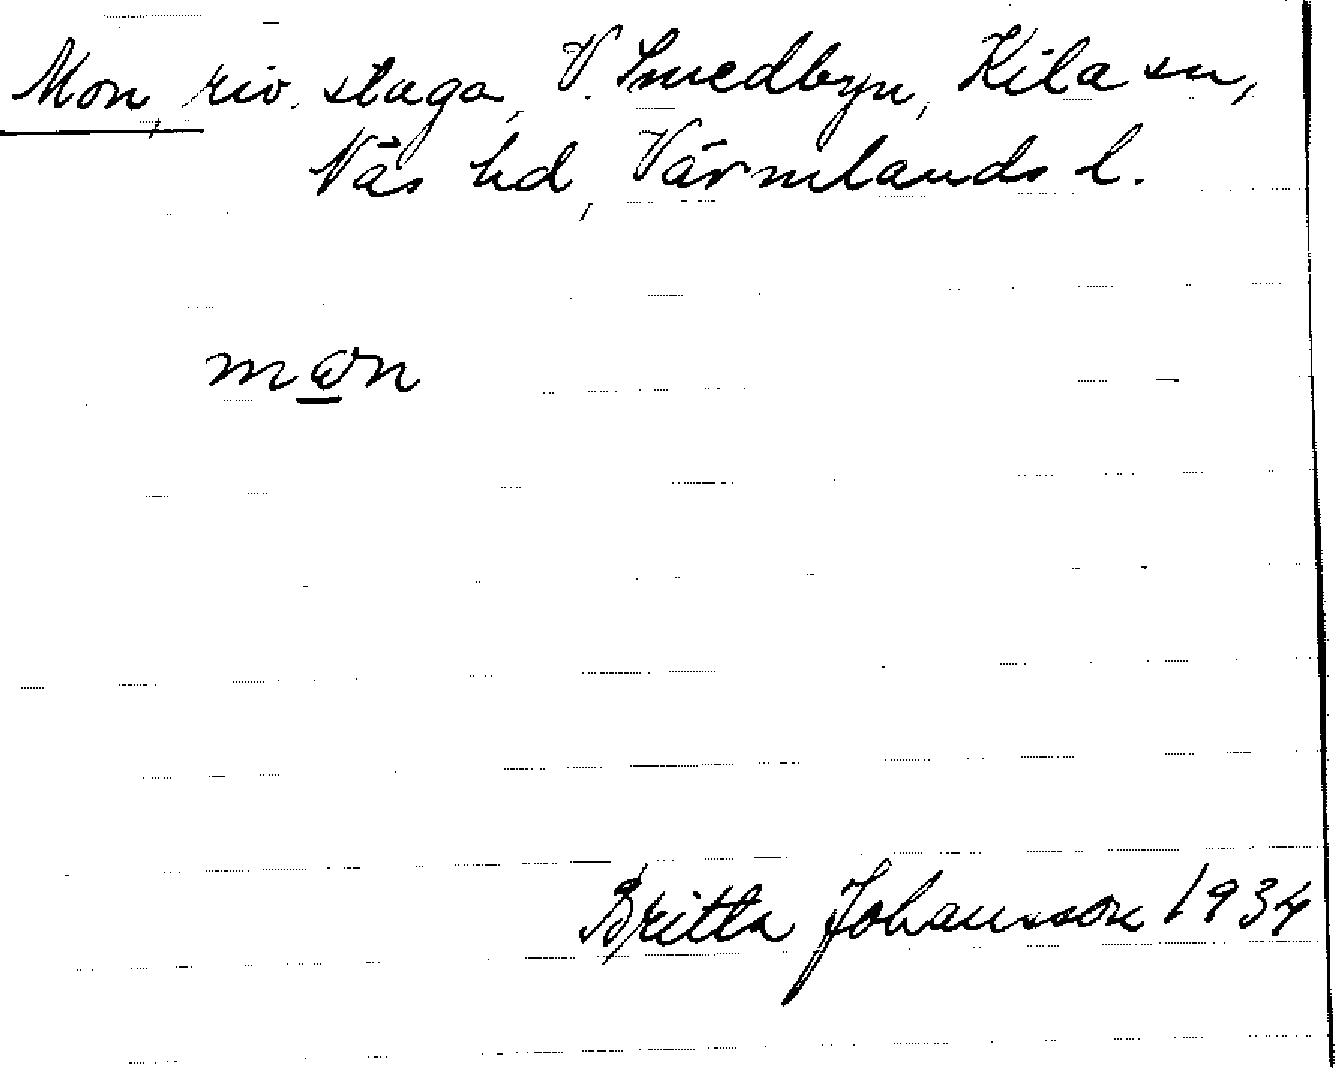 Mon, riv. stuga, V. Smedbyn, Kila sn,
Näs hd, Värmlands l.
Britta Johansson 1934